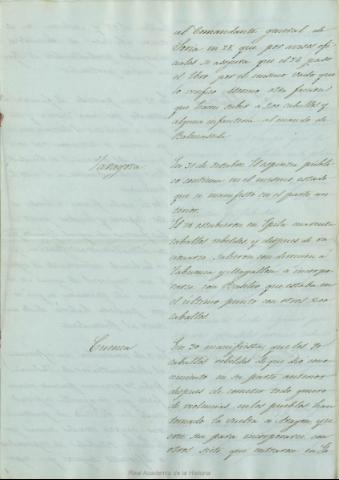 al Comandante general de
Soria en 28, que por avisos ofi-
ciales se asegura que el 24 paso
el Ebro por el mismo vado que
lo verifico Merino otra faccion
que traen sobre a 200 caballos y
alguna infanteria al mando de
Balmaseda.
Zaragoza
En 31 de Octubre. El espiritu publi-
co continua en el mismo estado
que se manifestó en el parte an-
terior.
El 30 estubieron en Epila cuarenta
caballos rebeldes y despues de ra-
cionarse, salieron con direccion á
Tabuenca y Magallon á incorpo-
rarse con Batelo que estaba en
el ultimo punto con otros 200
caballos.
Cuenca
En 30 manifiesta, que los 90
caballos rebeldes de que dio cono-
cimiento en su parte anterior
despues de cometer todo genero
de violencias en los pueblos han
tomado la vuelta á Aragon y
con sus para incorporarse con
otros siete que entraron en la
Real Academia de la Historia